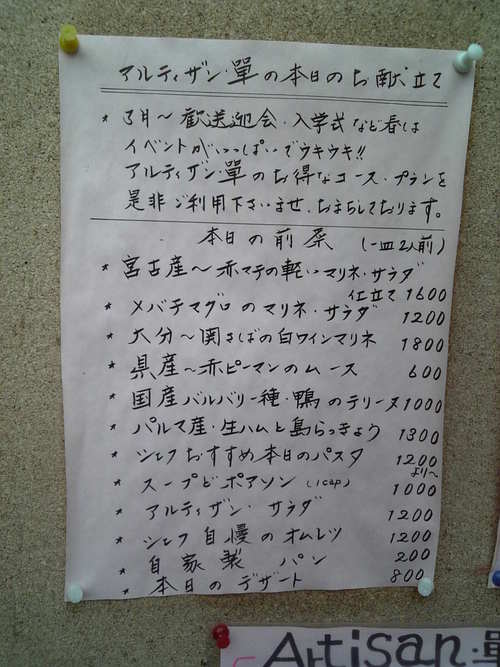 アルティザン・單の本日のお献立て
* 3月〜 歓送迎会・入学式など春は
イベントがいっぱいでウキウキ!!
アルティザン・單のお得なコース・プランを
是非ご利用下さいませ、おまちしております。
本日の前菜 (一皿2人前)
* 宮古産〜赤マテの軽いマリネ・サラダ
仕立て 1600
* メバチマグロのマリネ・サラダ 1200
* 大分〜関さばの白ワインマリネ 1800
* 県産〜赤ピーマンのムース 600
* 国産バルバリー種・鴨のテリーヌ 1000
* パルマ産・生ハムと島らっきょう 1300
* シェフおすすめ本日のパスタ 1200
より〜
* スープドポアソン (1cap) 1000
* アルティザン・サラダ 1200
* シェフ自慢のオムレツ 1200
* 自家製 パン 200
* 本日のデザート 800
Artisan・單